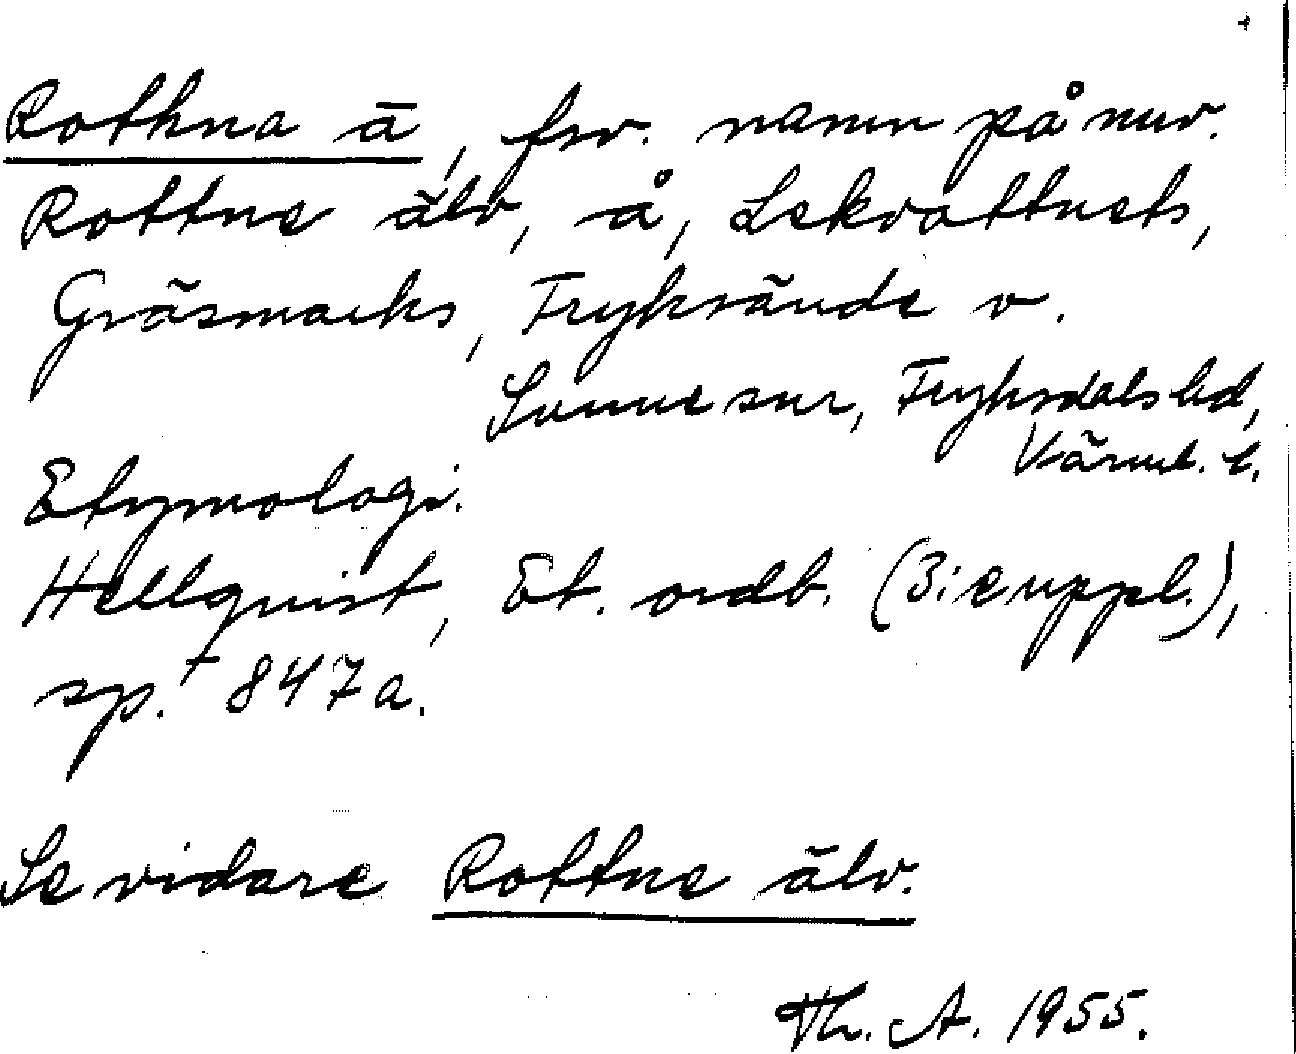 Rothna ā, fsv. namn på nuv.
Rottne älv, å, Lekvattnets,
Gräsmarks, Fryksände o.
Sunne snr, Fryksdals hd,
Värml. l.
Etymologi.
Hellquist, Et. ordb. (3:e uppl.),
sp. 847 a.
Se vidare Rottne älv.
Th. A. 1955.